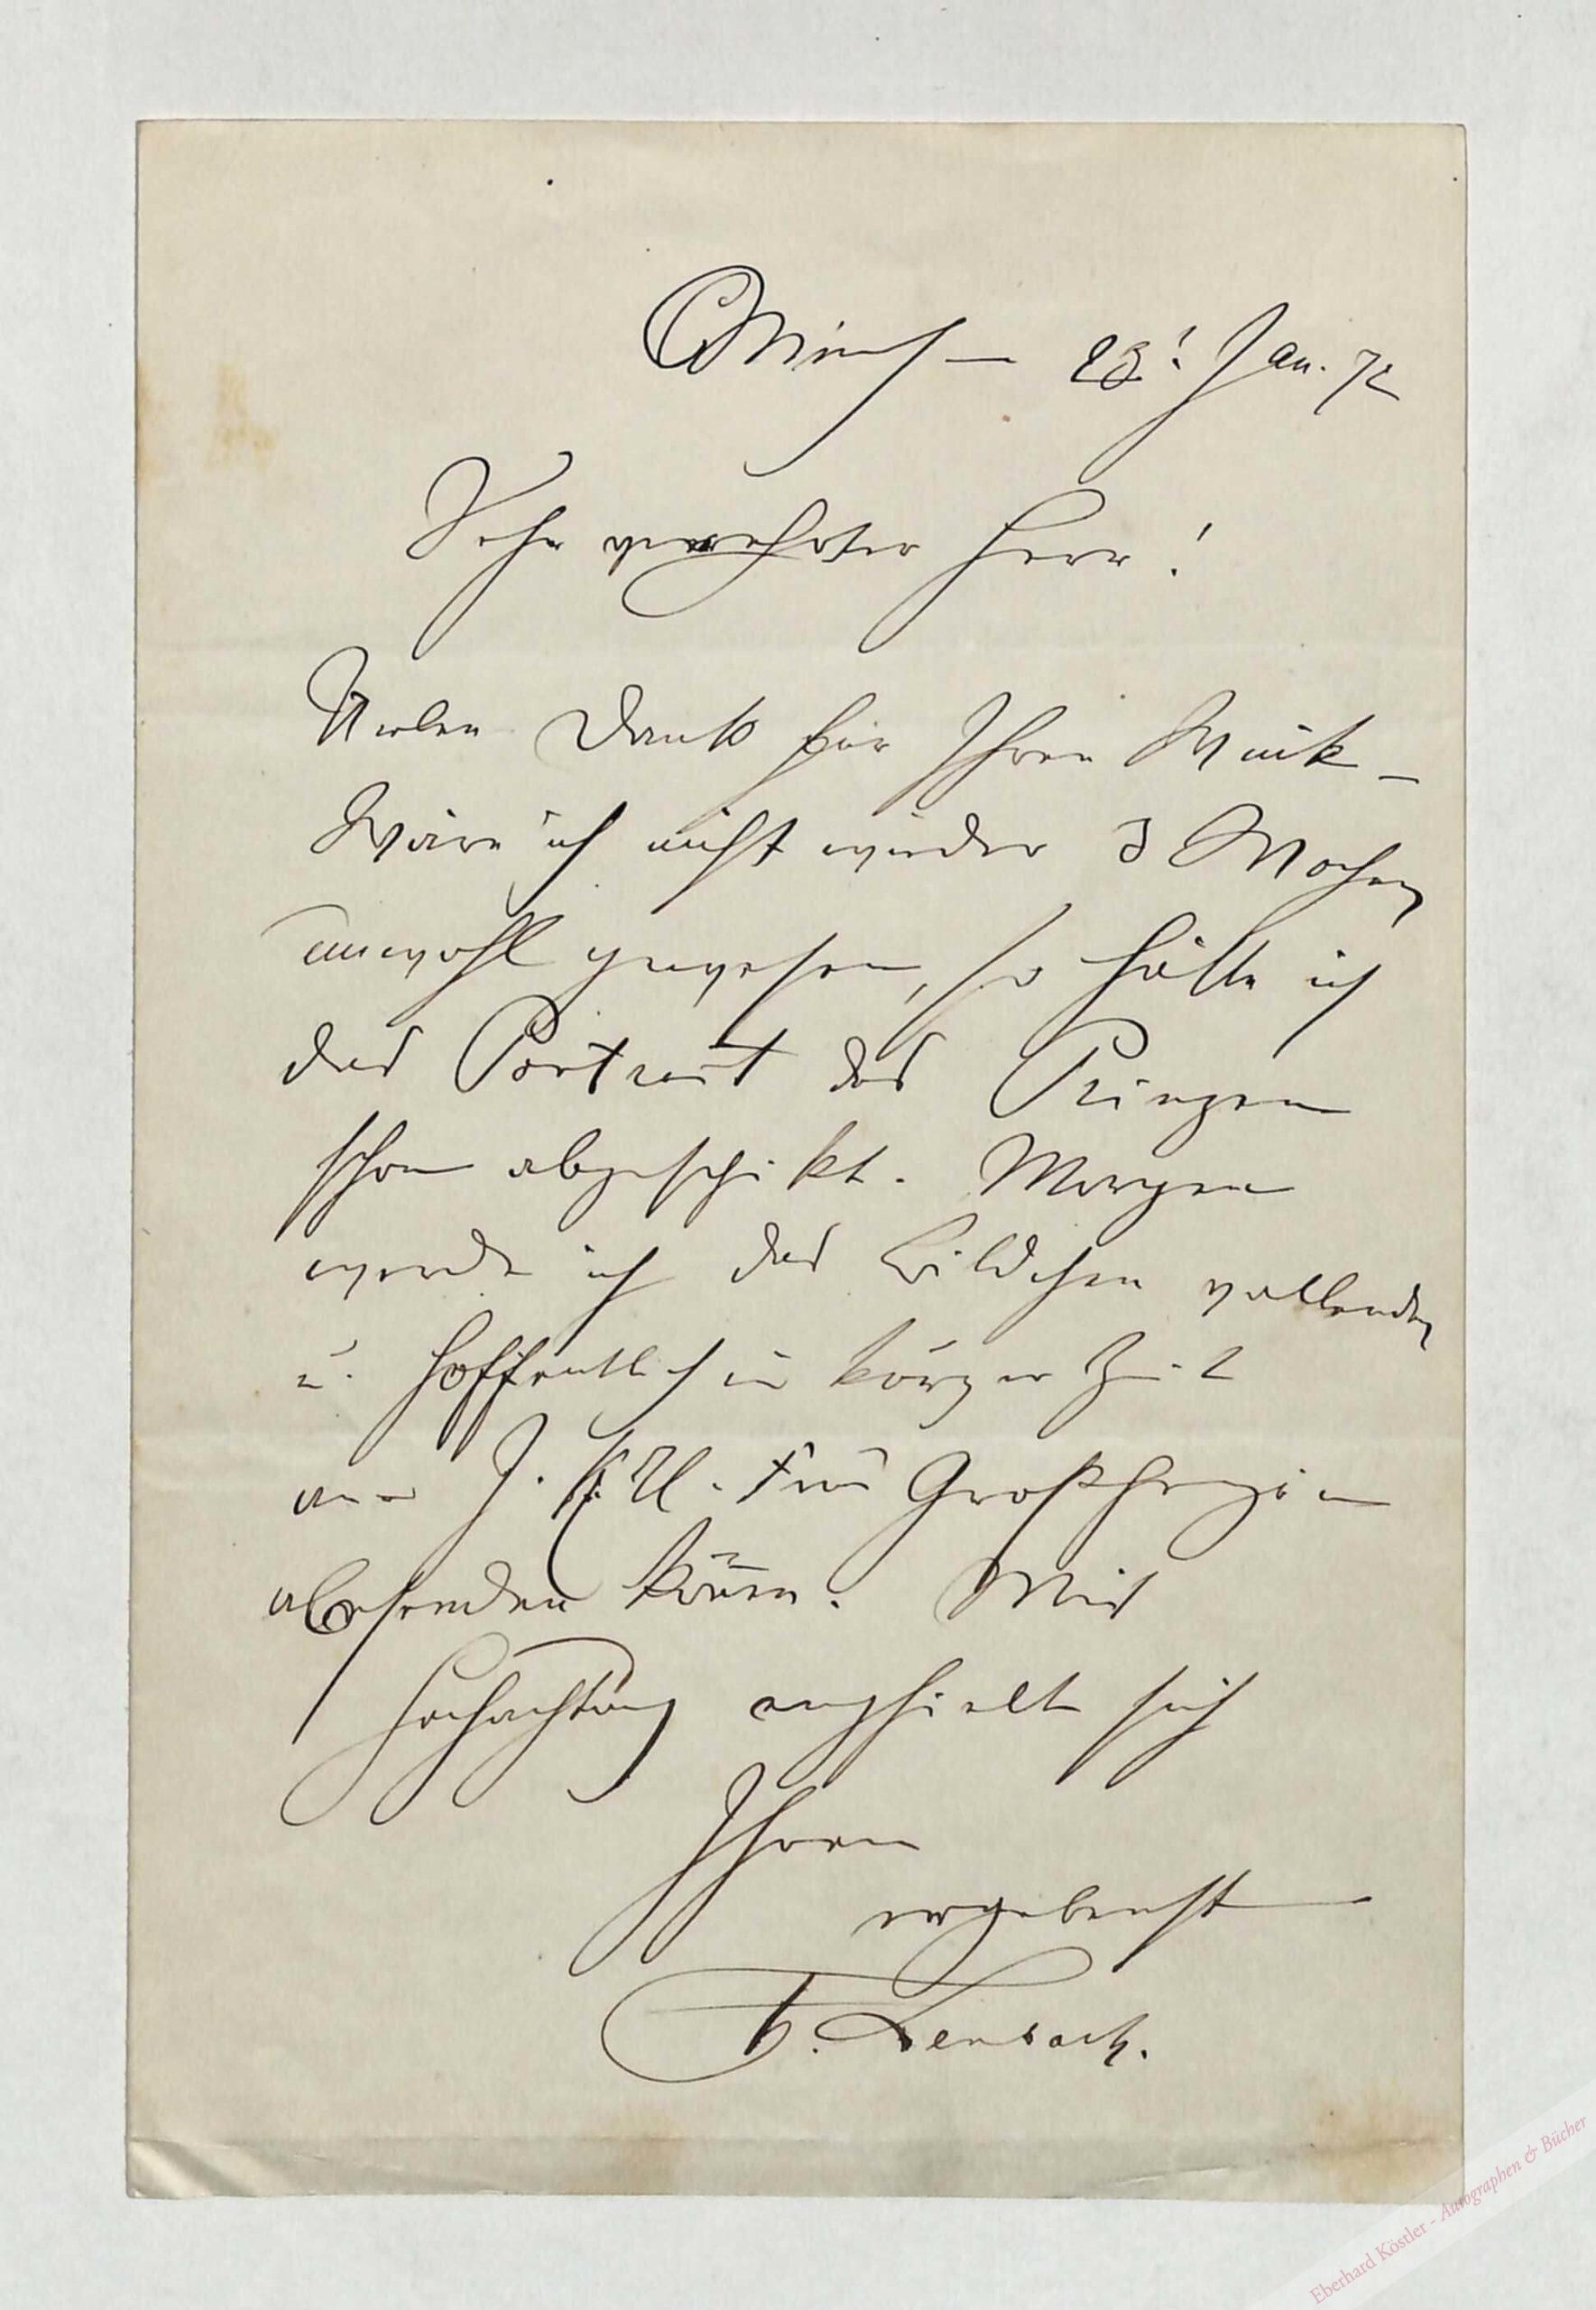 Münch 23t Jan. 72
Sehr verehrter Herr!
Vielen Dank für Ihren Wink –
Wäre ich nicht wieder 3 Wochen
unwohl gewesen, so hätte ich
das Portrait des Prinzen
schon abgeschikt. Morgen
werde ich das Bildchen vollenden
u. hoffentlich in kurzer Zeit
an I. K. H. Frau Großherzogin
absenden können. Mit
Hochachtung empfielt sich
Ihnen
ergebenst
F. Lenbach.
Eberhard Köstler - Autographen & Bücher